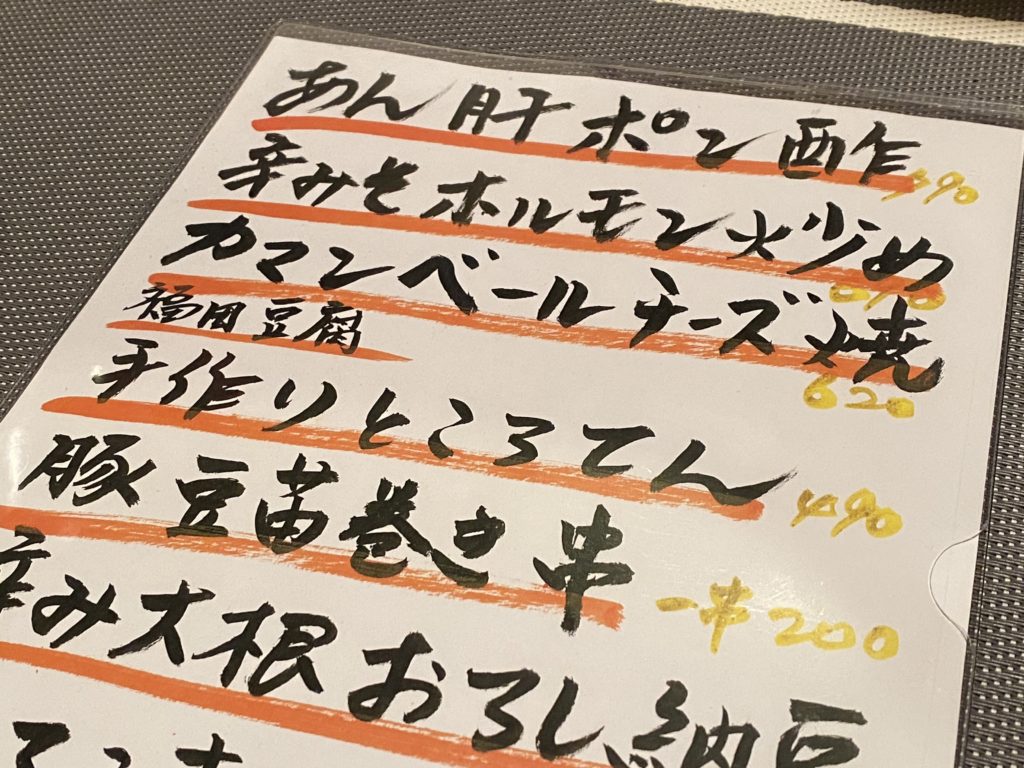 あん肝ポン酢
490
辛みそホルモン炒め
カマンベールチーズ焼
620
福岡豆腐
手作りところてん
490
豚豆苗巻き串
一串200
辛み大根おろし納豆